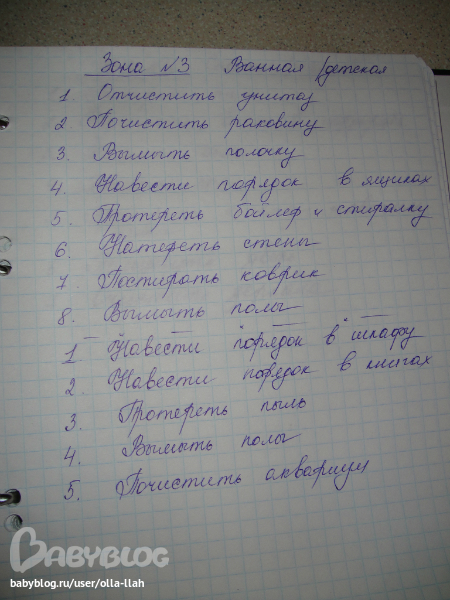 Зона №3 Ванная/детская
1 Отчистить унитаз
2. Почистить раковину
3. Вымыть полочку
4. Навести порядок в ящиках
5. Протереть бойлер и стиралку
6. Натереть стены
7. Постирать коврик
8. Вымыть полы
1 Навести порядок в шкафу
2. Навести порядок в книгах
3. Протереть пыль
4. Вымыть полы
5. Почистить аквариум
BABYBLOG
babyblog.ru/user/olla-llah